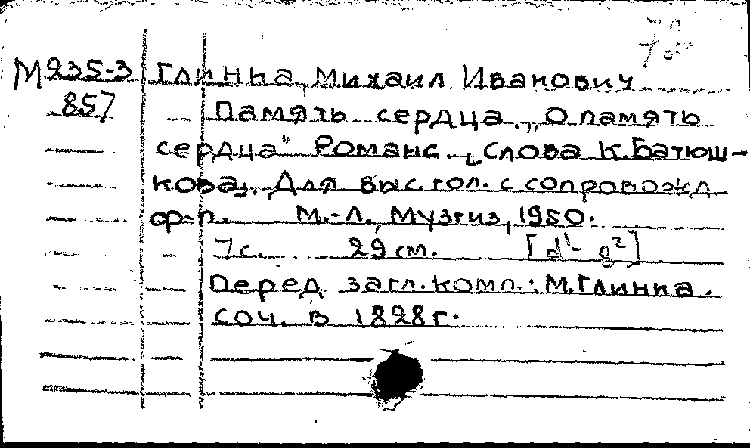 М235-3 Глинка, Михаил Иванович
857 Память сердца. „О память
сердца" Романс. [Слова К. Батюш-
кова]. Для выс. гол. с сопровожд.
ф-п. М.-Л., Музгиз, 1950.
7 с. 29 см. [d¹- g²]
Перед загл. комп.: М. Глинка.
Соч. в 1828 г.